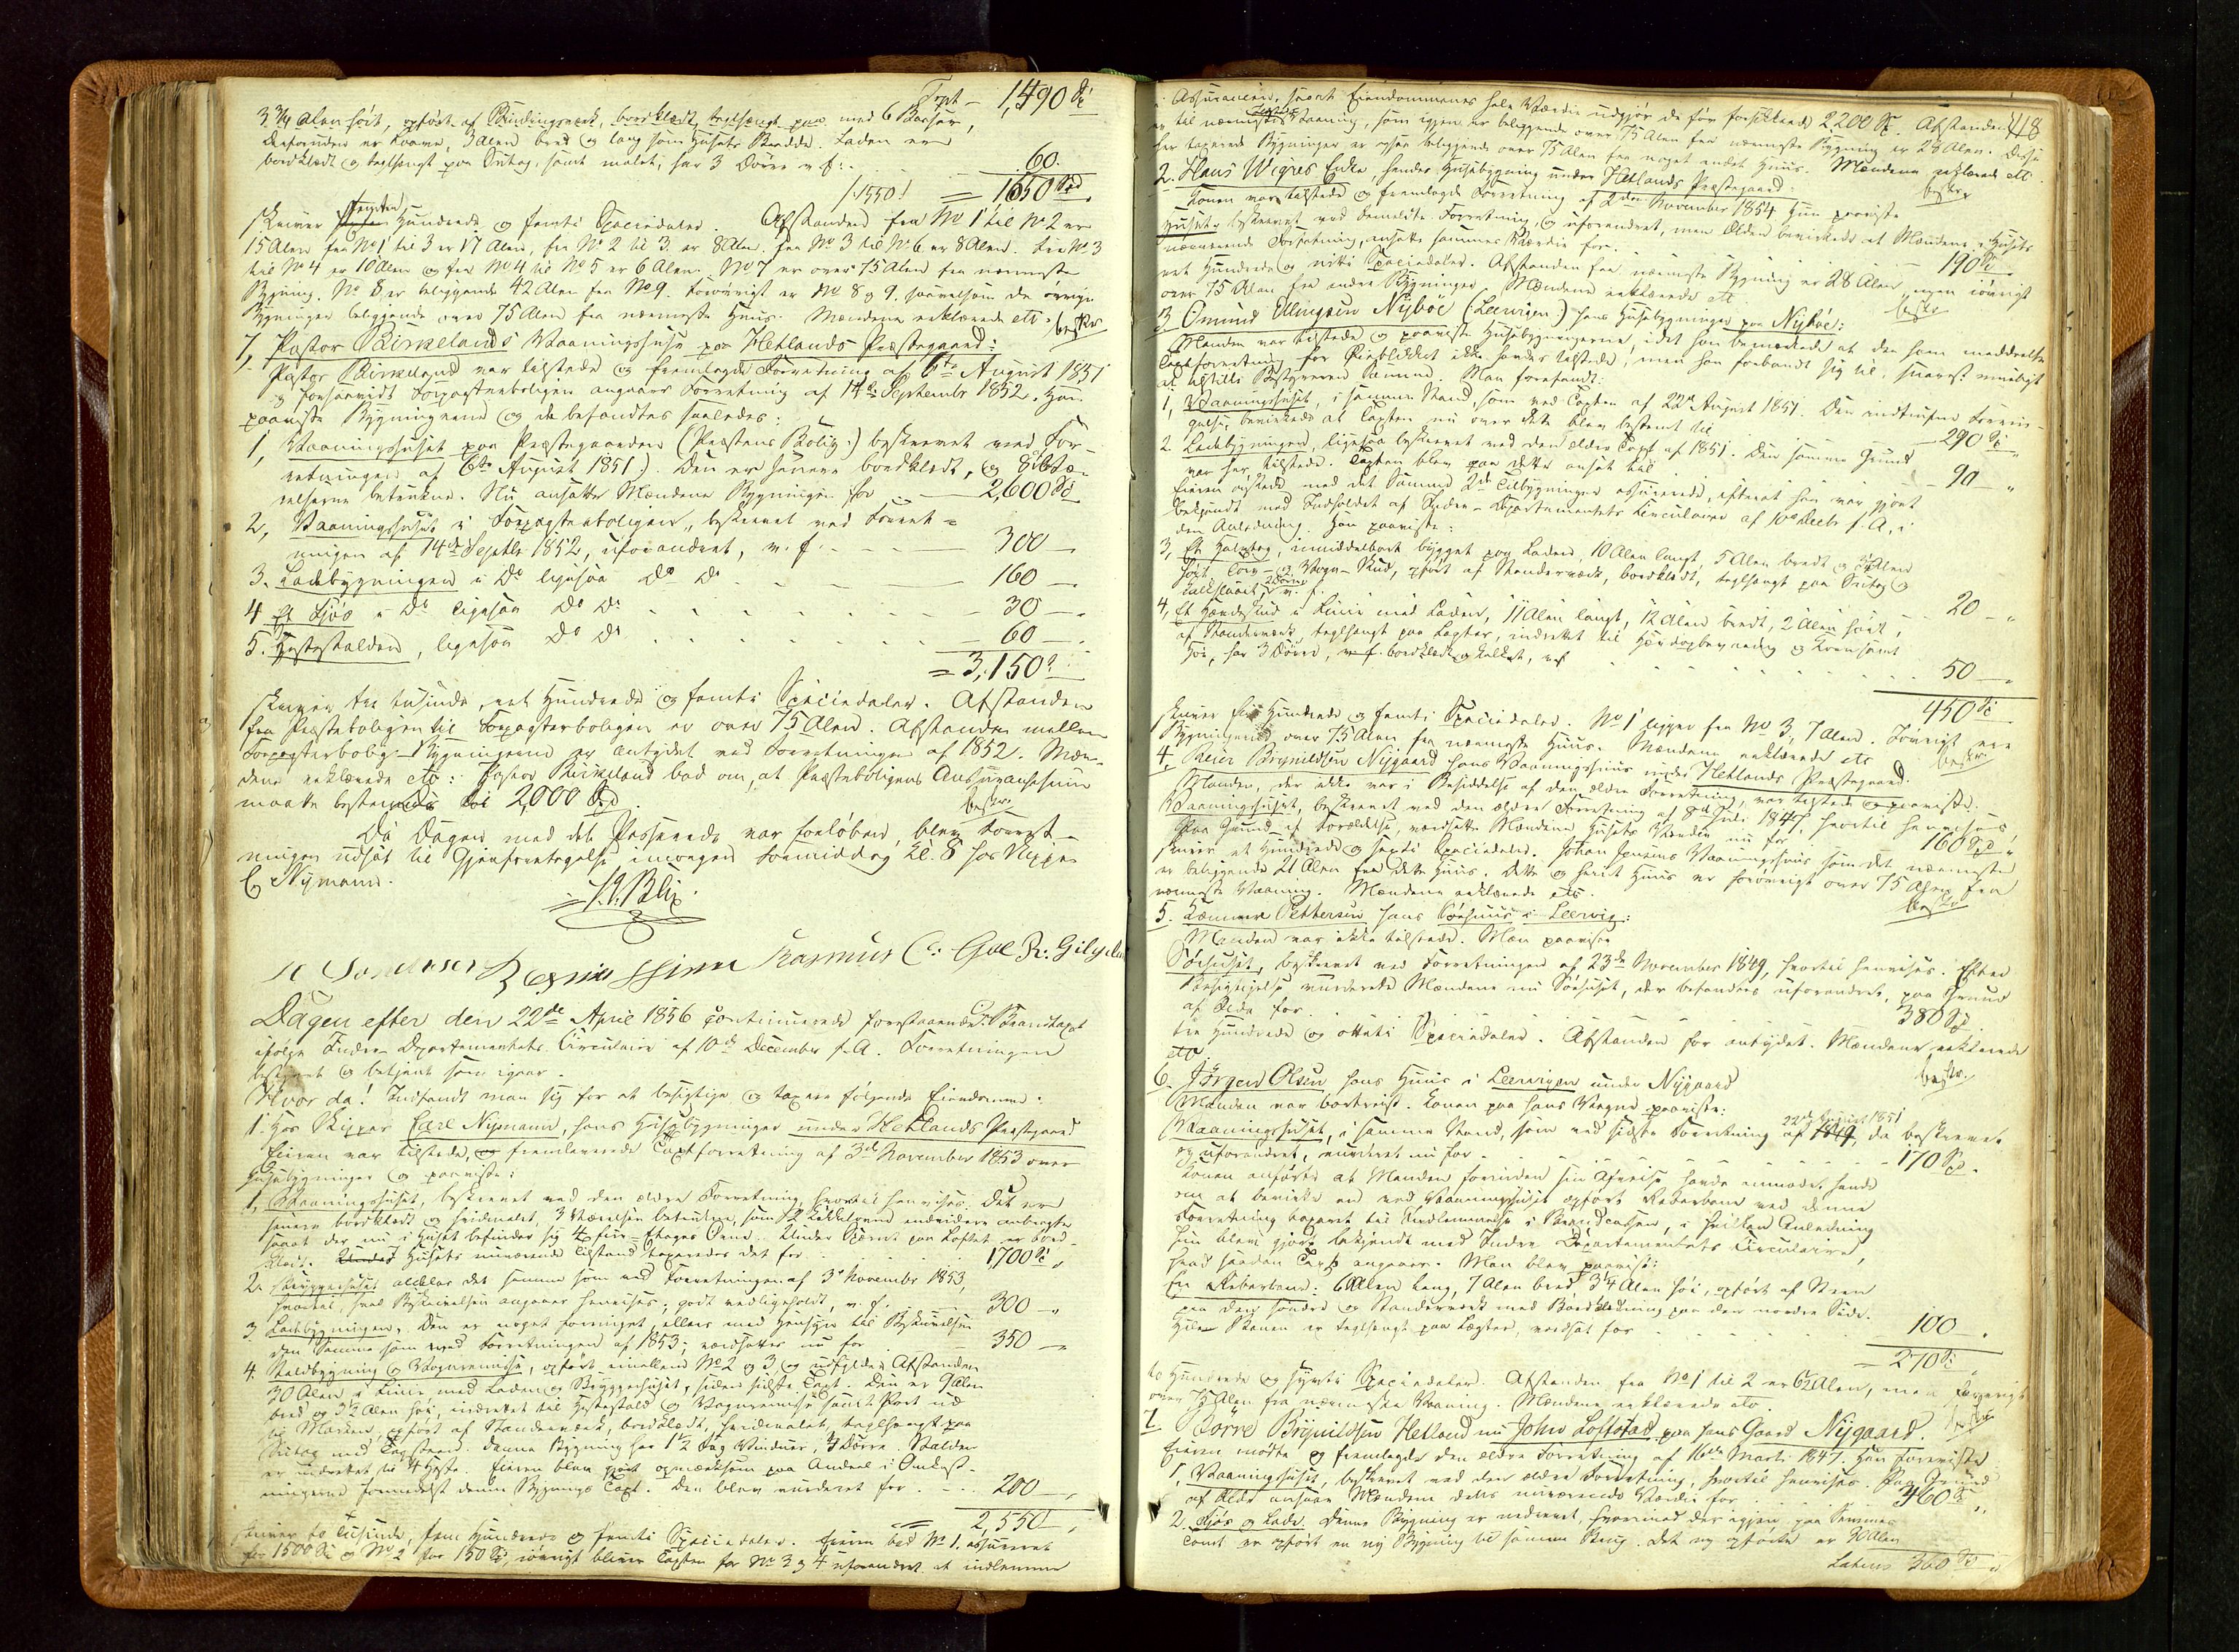 Trpt - 1,490 Sp
3 3/4 Alen høit, opført af Bindingsværk, bordklædt, teglhængt paa med 6 Baaser,
derforuden er Loove, 3 Alen bred og lang som Husets Bredde. Laden er
bordklædt og teglhængt paa Sutag, samt malet, har 3 Døre v. f.: 60.
/1550! = 1650 Spd
skriver femten Hundrede og femti Speciedaler. Afstanden fra No 1 til No 2 er
15 Alen fra No 1 til 3 er 17 Alen, fra No 2 til 3 er 8 Alen fra No 3 til No 6 er 8 Alen fra No 3
til No 4 er 10 Alen og fra No 4 til No 5 er 6 Alen. No 7 er over 75 Alen fra nærmeste
Bygning. No 8 er beliggende 42 Alen fra No 9. Forøvrigt er No 8 og 9 saavelsom de øvrige
Bygninger beliggende over 75 Alen fra nærmeste Huus. Mændene erklærede etc. beskr
7, Pastor Birkelands Vaaningshuse paa Hetlands Præstegaard:
Pastor Birkeland var tilstede og fremlagde Forretning af 6te August 1851
og forsaavidt Forpagterboligen angaaer Forretning af 14de September 1852. Han
paaviste Bygningerne og de befandtes saaledes:
1, Vaaningshuset paa Præstegaarden (Præstens Bolig) beskrevet ved For-
retningen af 6te August 1851. Den er senere bordklædt, og 8 Væ-
relserne betrukne. Nu ansatte Mændene Bygningen for - 2,600 Sp
2, Vaaningshuset i Forpagterboligen, beskrevet ved Forret-
ningen af 14de Septbr 1852, uforandret, v. f. - - - 300 -
3. Ladebygningen i Do ligesaa Do Do - 160 -
4 Et Fjøs - Do ligesaa Do Do - 30 -
5. Hestestalden, ligesaa Do Do - 60 -
= 3,150
skriver tre tusinde, eet Hundrede og femti Speciedaler. Afstanden
fra Præsteboligen til Forpagterboligen er over 75 Alen. Afstanden mellem
Forpagterbolig-Bygningerne er antydet ved Forretningen af 1852. Mæn-
dene erklærede etc: Pastor Birkeland bad om, at Præsteboligens Assurancesum
maatte bestemmes til 2000 Spd. beskr.
Da Dagen med det Passerede var forløben, blev Forret-
ningen udsat til Gjenforetagelse imorgen Formiddag Kl. 8 hos Skipper
C. Nymann.
Blix
Rasmus C: Goe R: Gilje
Dagen efter den 22de April 1856 continuerede forestaaende Brandtaxt
ifølge Indre-Departementets Circulaire af 10de December f. A. Forretningen
bestyret og betjent som igaar.
Hvor da! Indfandt man sig for at besigtige og taxere følgende Eiendomme:
1. Hos Skipper Carl Nymann, hans Husebygninger under Hetlands Præstegaard
Eieren var tilstede, og fremleverede Taxtforretning af 3de November 1853 over
Husebygninger og paaviste:
1, Vaaningshuset, beskrevet ved den ældre Forretning, hvortil henvises. Det er
senere bordklædt og hvidmalet, 3 Værelser betrukne, samt 2 Kakkelovne endvidere anbragte
saaat der nu i Huset befinder sig 4 fire-Etages Ovne. Under Taget paa Loftet er bord-
klædt. Husets nuværende Tilstand taxeredes det for - 1700 Sp
2. Bryggerhuset aldeles det samme som ved Forretningen af 3de November 1853,
hvortil, hvad Beskrivelsen angaaer henvises; godt vedligeholdt, v. f. - 300 -
3. Ladebygningen. Den er noget forringet, ellers med Hensyn til Beskrivelsen
den samme som ved Forretningen af 1853; ansattes nu for - 350 -
4. Staldbygning og Vognremisse, opført imellem No 2 og 3 og udfylder Afstanden
30 Alen i Linie med Laden og Bryggerhuset, siden sidste Taxt. Den er 9 Alen
bred og 3 1/2 Alen høi, indrettet til Hestestald og Vognremisse samt Port ud
til Marken, opført af Standerværk, bordklædt, hvidmalet, teglhængt paa
Sutag med Tagsteen. Denne Bygning har 1 1/2 Fag Vinduer, 4 Døre. Stalden
er indrettet til 4 Heste. Eieren blev gjort opmærksom paa Andeel i Omkost-
ningerne formedelst denne Bygnings Taxt. Den blev vurderet for - 200 -
= 2,550 -
skriver to Tusinde, fem Hundrede og femti Speciedaler. Eieren bad No 1. assureret
for 1500 Sp og No 2 for 150 Sp, iøvrigt bliver Taxten for No 3 og 4 uforandret at indlemme
418
i Assurancen, saant Eiendommenes hele Værdie udgjør de før forsikrede 2,200 Sp. Afstanden
er til nærmeste Vaaning, som igjen er beliggende over 75 Alen fra nærmeste Bygning er 28 Alen. Disse
her taxerede Bygninger er ogsaa beliggende over 75 Alen fra noget andet Huus. Mændene erklærede etc
2. Hans Wigres Enke, hendes Husebygning under Hetlands Præstegaard: beskr
Konen var tilstede og fremlagde Forretning af 2den November 1854. Hun paaviste
Huset, beskrevet ved bemeldte Forretning, og uforandret, men Ælden bevirkede at Mændene i Husets
nærværende Forfatning, ansatte sammes Værdie for - 190 Sp
eet Hundrede og nitti Speciedaler. Afstanden fra nærmeste Bygning er 28 Alen, men iøvrigt
over 75 Alen fra andre Bygninger. Mændene erklærede etc beskr
3 Omund Ellingsen Nybøe (Leervigen) hans Husebygninger paa Nybøe:
Manden var tilstede og paaviste Husebygningerne, idet han bemærkede at den ham meddeelte
Taxtforretning for Øieblikket ikke havdes tilstede, men han forbandt sig til, snarest mueligt
at tilstille Bestyreren samme. Man forefandt:
1, Vaaningshuset, i samme Stand, som ved Taxten af 22de August 1851. Den indtrufne Forrin-
gelse, bevirkede at Taxten nu over dette blev bestemt til - 290 Sp
2. Ladebygningen, ligesaa beskrevet ved den ældre Taxt af 1851. Den samme Grund
var her tilstede. Taxten blev paa dette ansat til - 90 -
Eieren ønskede med det Samme 2de Tilbygninger assurerede, efterat han var gjort
bekjendt med Indholdet af Indre-Departementets Circulaire af 10de Decbr f. A., i
den Anledning. Han paaviste:
3, Et Halvtag, umiddelbart bygget paa Laden, 10 Alen langt, 5 Alen bredt og 3 Alen
høit Torv- og Vogn-Skuur, opført af Standerværk, bordklædt, teglhængt paa Sutag og
kalkslaaet, 2 Døre, v. f. - 20 -
4, Et Hønde Skuur i Linie med Laden, 11 Alen langt, 12 Alen bredt, 2 Alen høit,
af Standerværk, teglhængt paa Lægter, indrettet til og Korn samt
Høe, har 3 Døre, v. f. bordklædt og kalket, v. f. - 50 -
450 Sp
skriver fire Hundrede og femti Speciedaler. No 1 ligger fra No 3, 7 Alen. Iøvrigt ere
Bygningerne over 75 Alen fra nærmeste Huus. Mændene erklærede etc beskr
4, Reier Brynildsen Nygaard hans Vaaningshuus under Hetlands Præstegaard.
Manden, der ikke var i Besiddelse af den ældre Forretning, var tilstede og paaviste:
Vaaningshuset, beskrevet ved den ældre Forretning af 8de Juli 1847, hvortil henvises,
Paa Grund af Forældelse, værdsatte Mændene Husets Værdie nu for - 160 Spd
skriver et Hundrede og sexti Speciedaler. Johan Jensens Vaaningshuus som det nærmeste
er beliggende 21 Alen fra dette Huus. Dette og hiint Huus er forøvrigt over 75 Alen fra
nærmeste Vaaning. Mændene erklærede etc. beskr
5. Kæmner Pettersen hans Søehuus i Leervig:
Manden var ikke tilstede. Man paaviste
Søehuset, beskrevet ved Forretningen af 23de November 1849, hvortil henvises. Efter
Besigtigelse vurderede Mændene nu Søehuset, der befandtes uforandret, paa Grund
af Ælde for - 380 Sp
tre Hundrede og otteti Speciedaler. Afstanden før antydet. Mændene erklærede
etc beskr.
6. Jørgen Olsen hans Huus i Leervigen under Nygaard
Manden var bortreist. Konen paa hans Vegne paaviste:
Vaaningshuset, i samme Stand, som ved sidste Forretning af 22de August 1851, da beskrevet
og uforandret, vurderet nu for - 170 Sp.
Konen anførte at Manden forinden sin Afreise havde anmodet hende
om at bevirke en ved Vaaningshuset opført Reberbane ved denne
Forretning taxeret til Indlemmelse i Brandcassen, i hvilken Anledning
hun blev gjort bekjendt med Indre-Departementets Circulaire,
hvad saadan Taxt angaaer. Man blev paavist:
En Reberbane: 6 Alen lang, 7 Alen bred 3 1/4 Alen høi, opført af Steen
paa den søndre og Standerværk med Bordklædning paa den nordre Side.
Hele Banen er teglhængt paa Lægter, værdsat for - 100 -
= 270 Sp
to Hundrede og sytti Speciedaler. Afstanden fra No 1 til 2 er 6 1/2 Alen, men forøvrigt
over 75 Alen fra nærmeste Vaaning. Mændene erklærede etc. beskr
7 Børre Brynildsen Hetland nu John Loftstad paa hans Gaard Nygaard.
Eieren mødte og fremlagde den ældre Forretning af 16de Marts 1847. Han foreviste
1, Vaaningshuset, beskrevet ved den ældre Forretning, hvortil henvises. Paa Grund
af Ælde ansaae Mændene dets nuværende Værdie for - 360 Sp
2. Fjøs og Lade. Denne Bygning er nedrevet, hvorimod der igjen paa samme
Tomt er opført en ny Bygning til samme Brug. Det ny opførte er 30 Alen
Latus 360 Sp